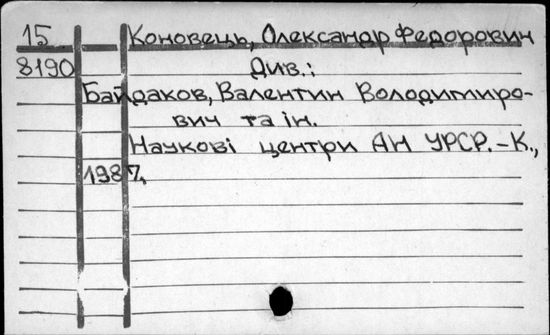 15 Коновець, Олександр Федорович
8190 Див.:
Байдаков, Валентин Володимиро-
вич та ін.
Наукові центри АН УРСР. - К.,
1987,